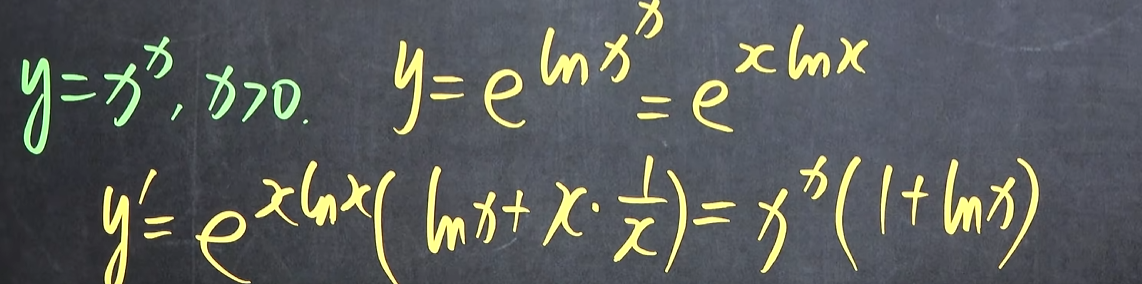 y = x^x, x>0. y = e^{ln x^x} = e^{x ln x}
y' = e^{x ln x}( ln x + x · 1/x ) = x^x ( 1 + ln x )